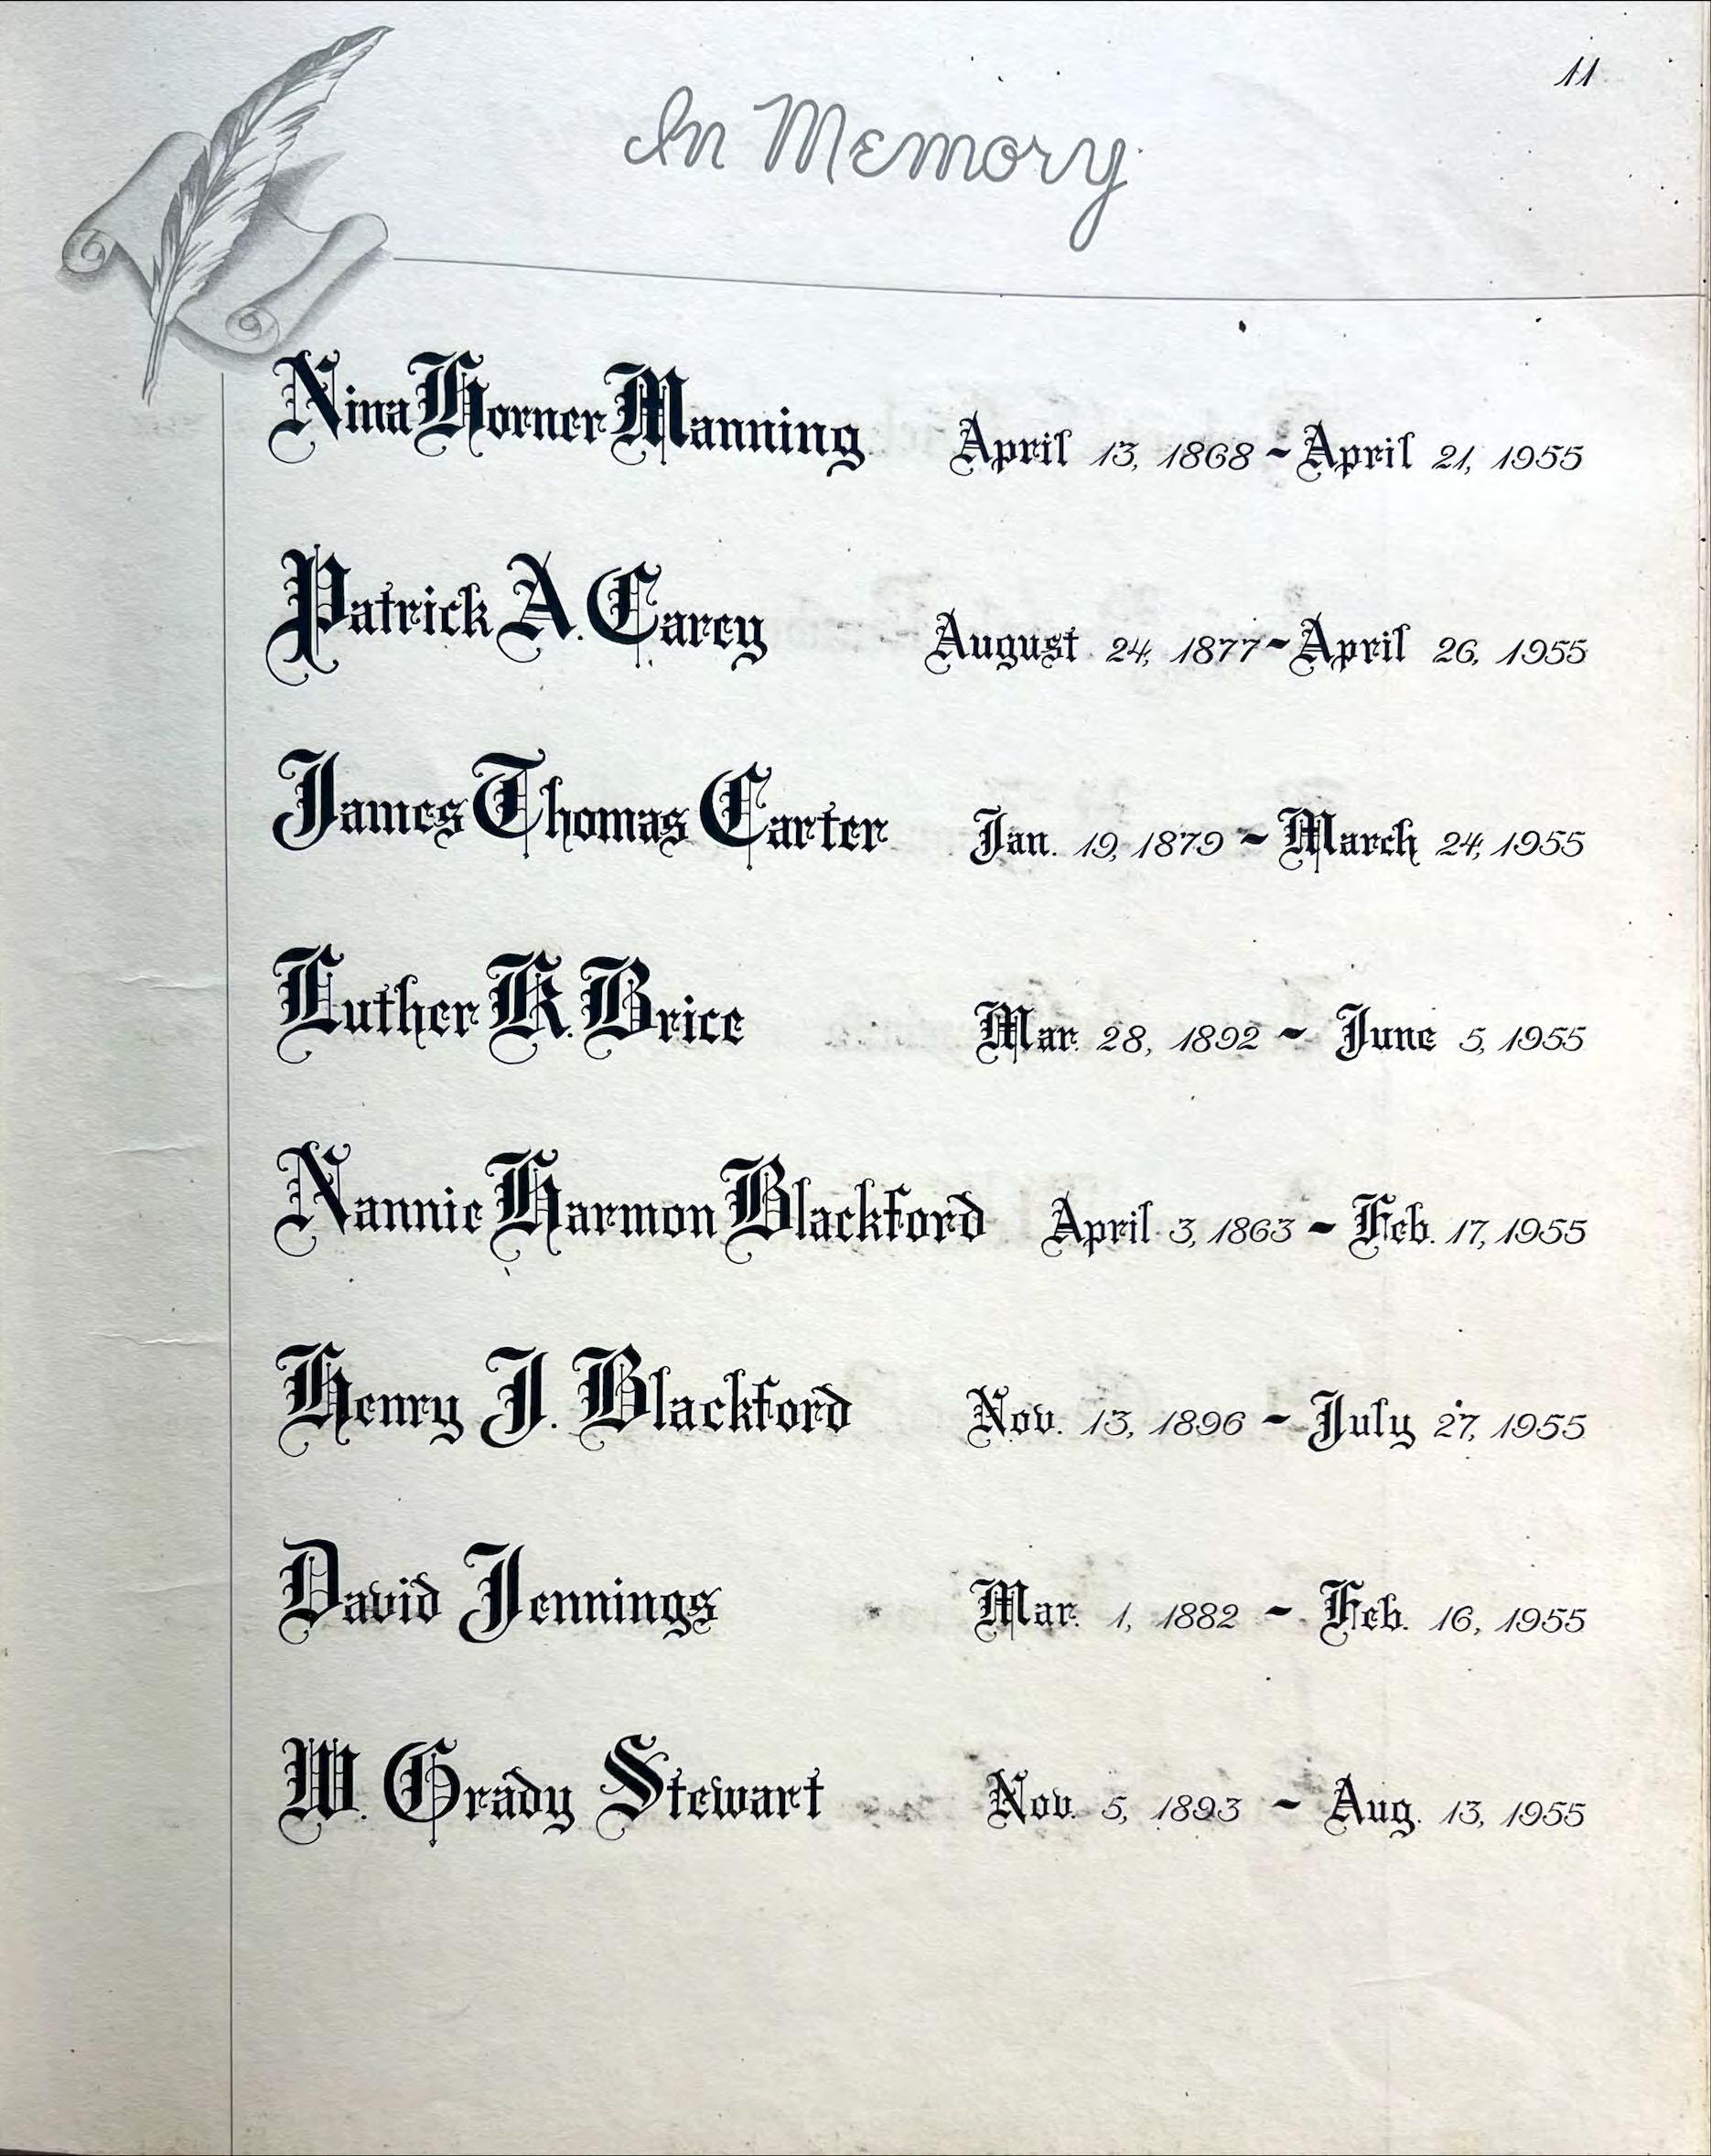 11
In Memory
Nina Horner Manning April 13, 1868 ~ April 21, 1955
Patrick A. Carey August 24, 1877 ~ April 26, 1955
James Thomas Carter Jan. 19, 1879 ~ March 24, 1955
Luther K. Brice Mar. 28, 1892 ~ June 5, 1955
Nannie Harmon Blackford April 3, 1863 ~ Feb. 17, 1955
Henry J. Blackford Nov. 13, 1896 ~ July 27, 1955
David Jennings Mar. 1, 1882 ~ Feb. 16, 1955
W. Grady Stewart Nov. 5, 1893 ~ Aug. 13, 1955